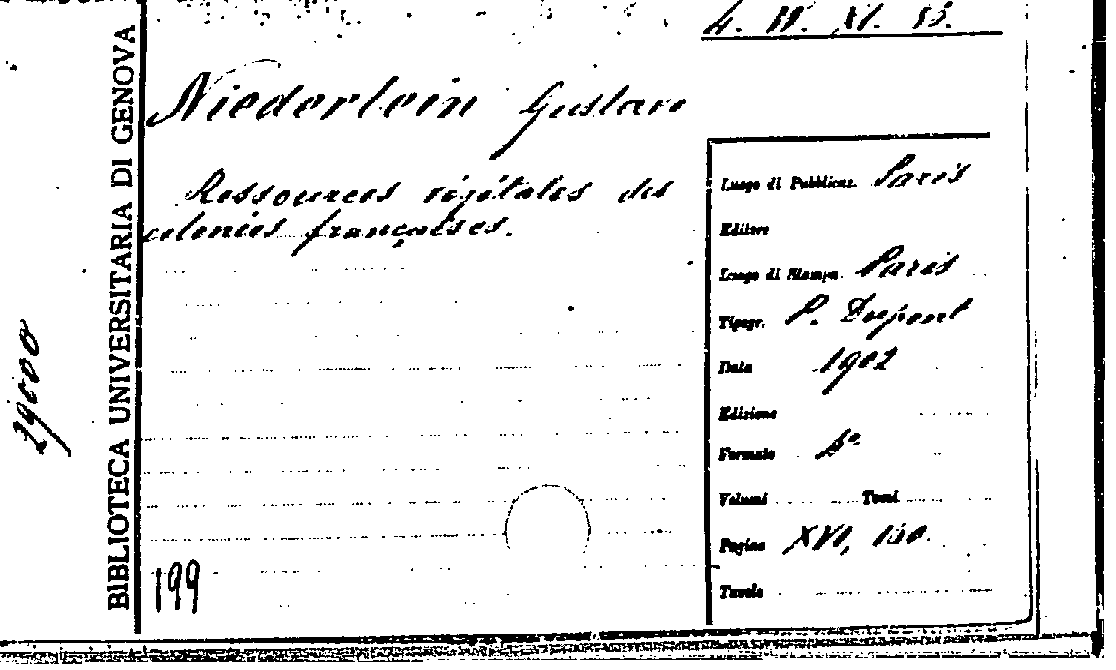 4. IV. XI. 53.
Niederlein Gustave
Ressources végétales des
colonies françaises.
Luogo di Pubblicaz. Paris
Editore
Luogo di Stampa Paris
Tipogr. P. Dupont
Data 1902
Edizione
Formato 8º
Volumi Tomi
Pagine XVI,
Tavole
BIBLIOTECA UNIVERSITARIA DI GENOVA
29000
199